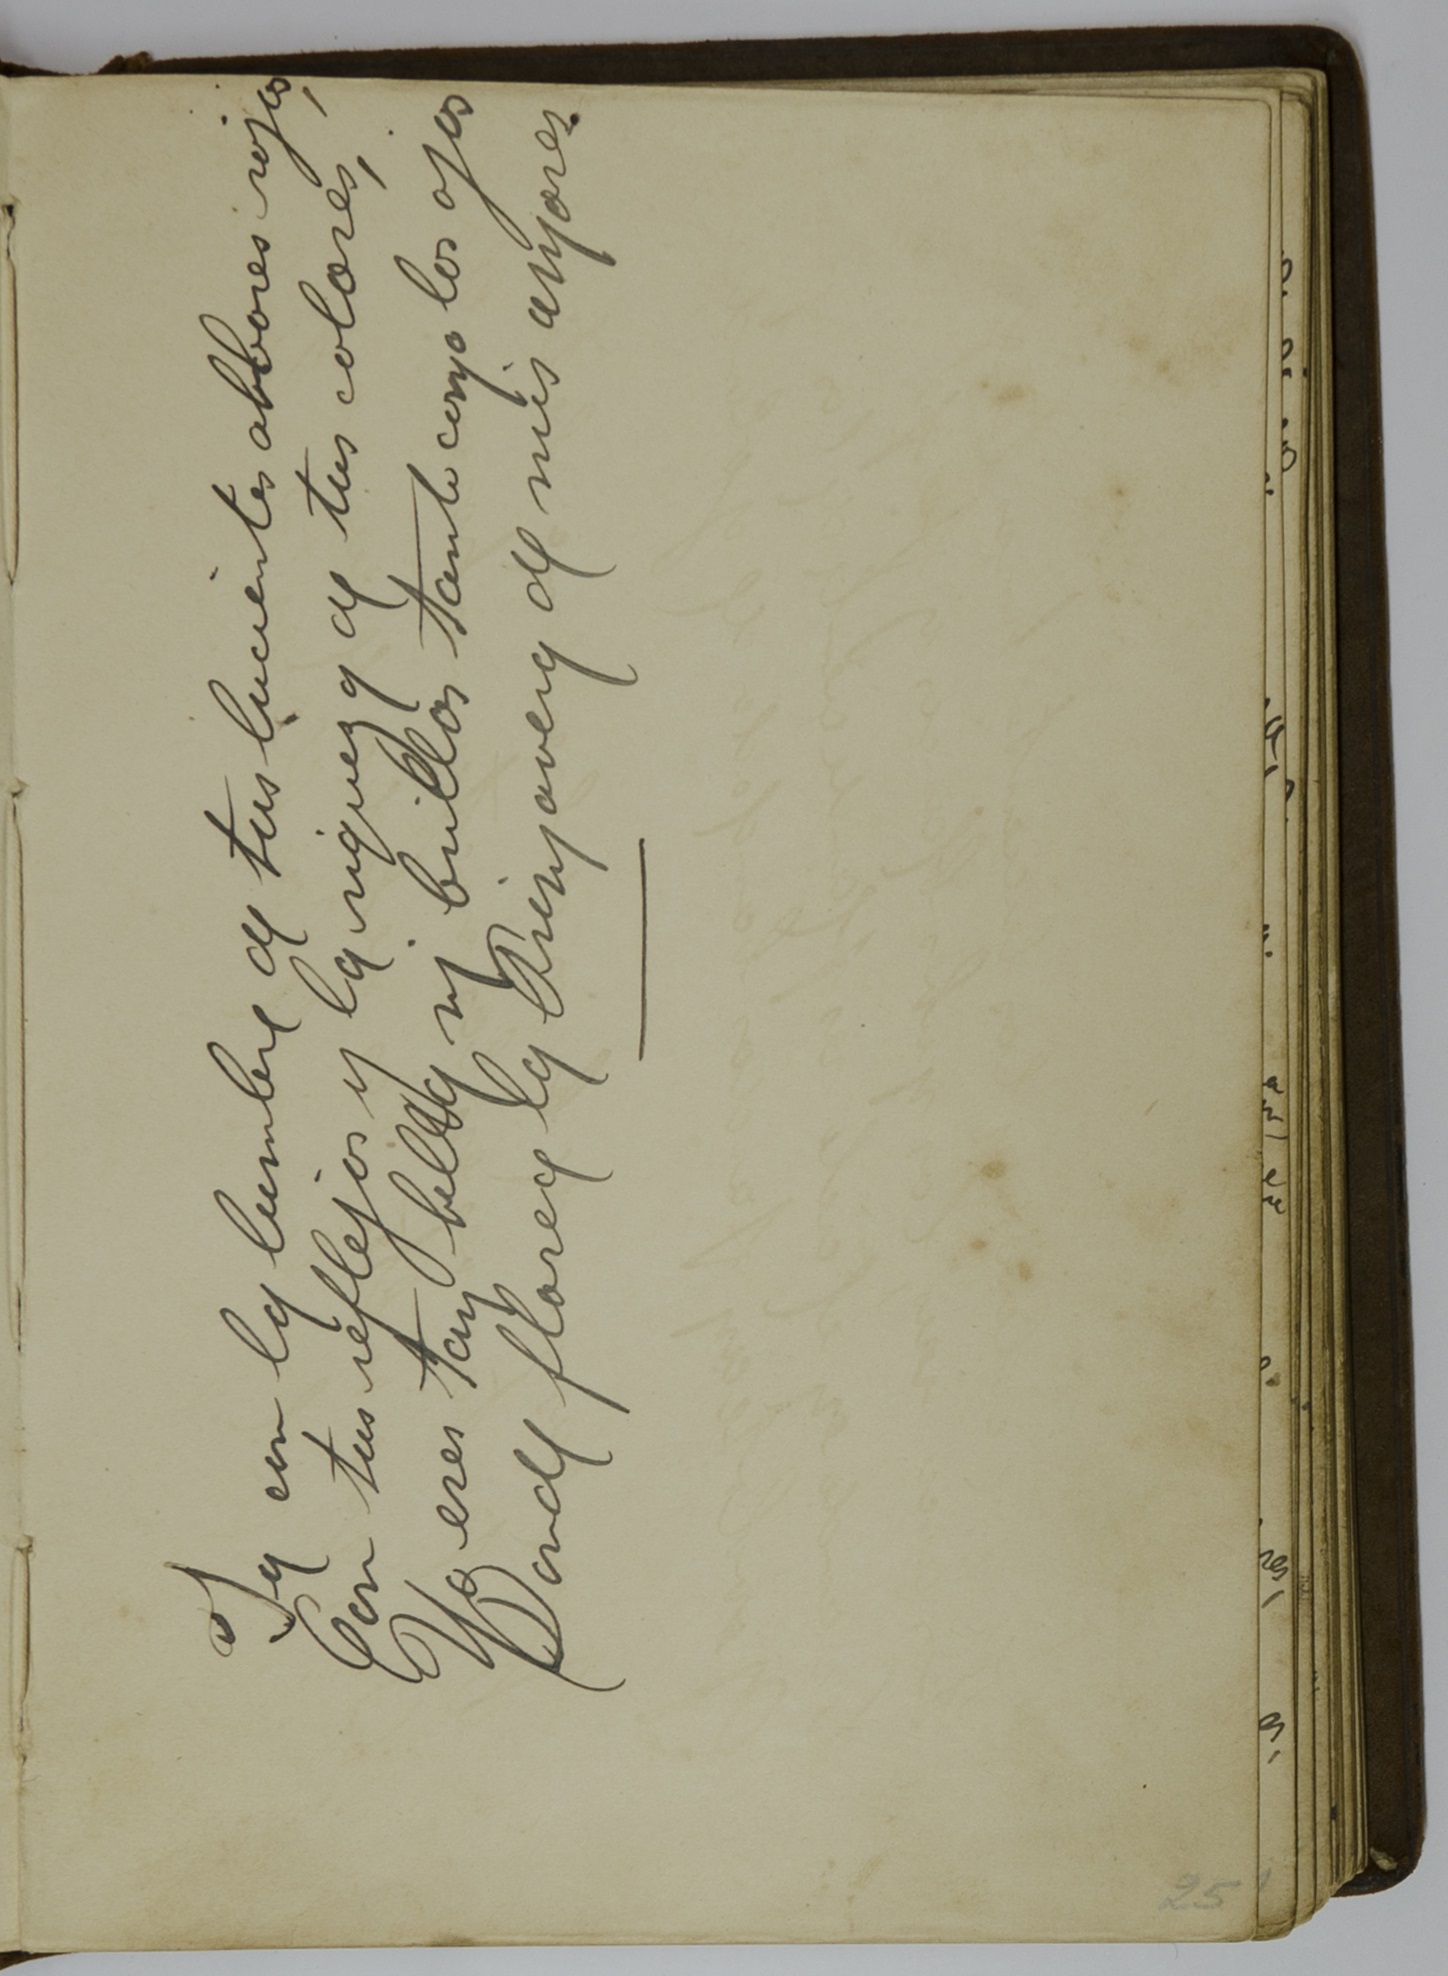 Ya con la lumbre de tus lucientes albores rojos,
Con tus reflejos y la riqueza de tus colores,
No eres tan bella ni brillas tanto como los ojos
Donde florece la Primavera de mis amores.
25